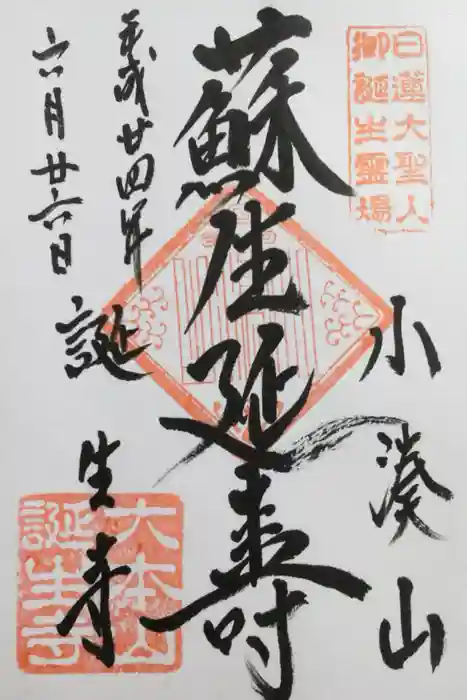 日蓮大聖人
御誕生霊場
小湊山
蘇生延寿
平成廿四年
六月廿六日
誕生寺
大本山
誕生寺